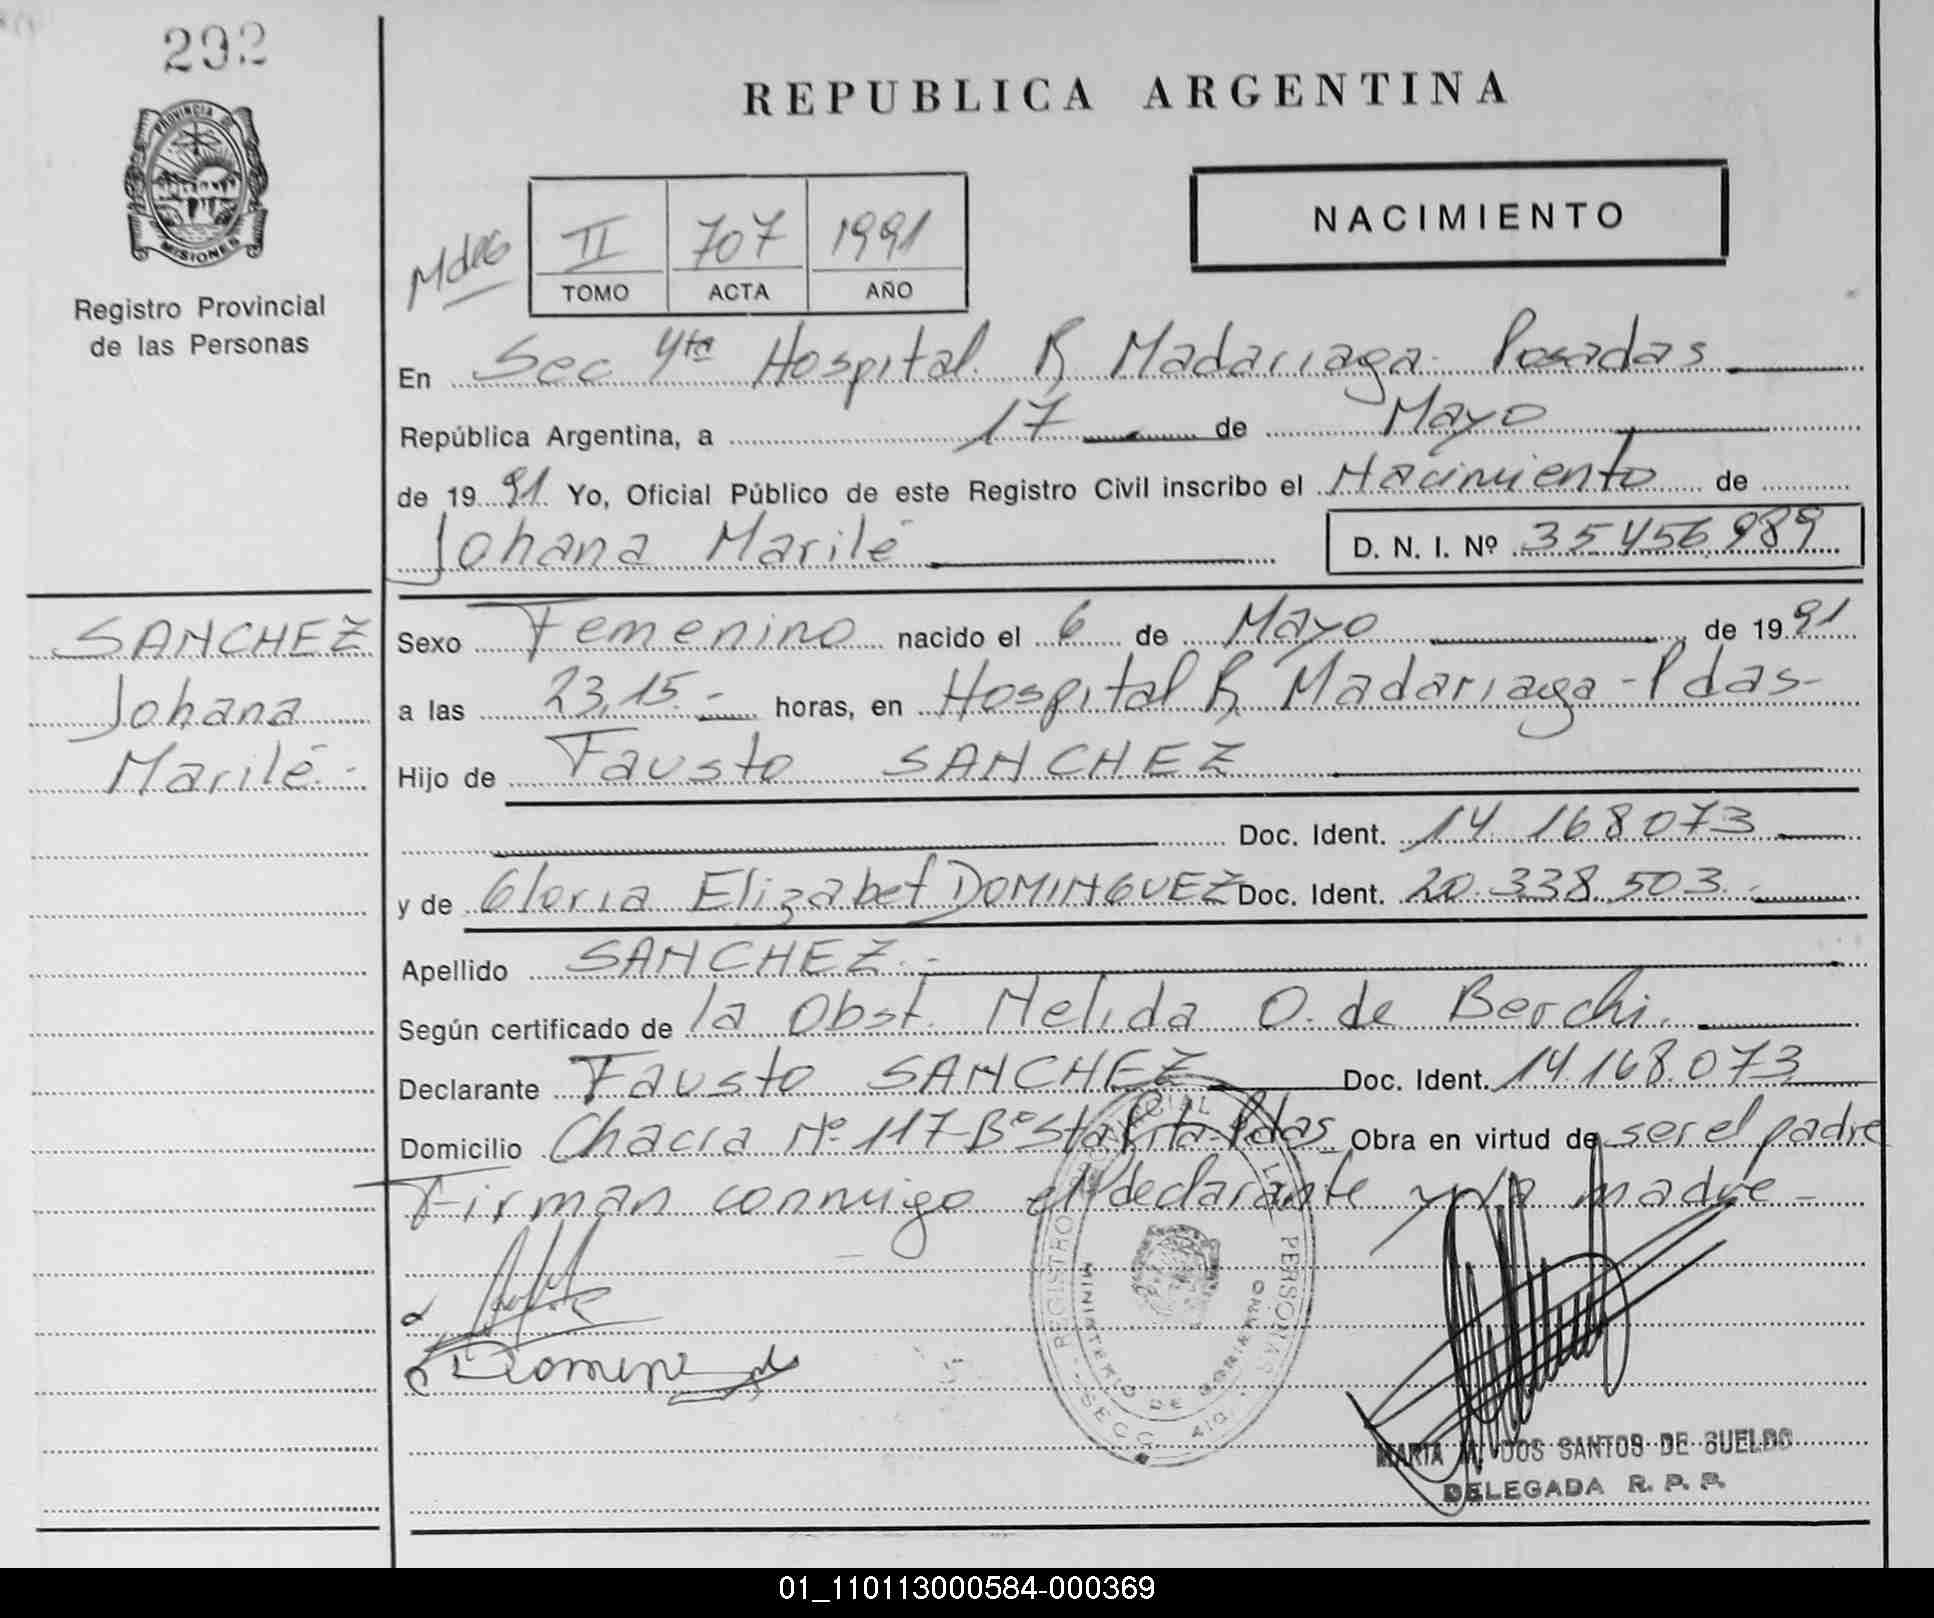 292
PROVINCIA DE
MISIONES
Registro Provincial
de las Personas
REPUBLICA ARGENTINA
NACIMIENTO
II 707 1991
TOMO ACTA AÑO
En Sec 4ta Hospital R Madariaga. Posadas
República Argentina, a 17 de Mayo
de 1991 Yo, Oficial Público de este Registro Civil inscribo el Nacimiento de
Johana Marilé D. N. I. Nº 35456989
SANCHEZ
Johana
Marilé.-
Sexo Femenino nacido el 6 de Mayo de 1991
a las 23,15.- horas, en Hospital R Madariaga-Pdas-
Hijo de Fausto SANCHEZ
Doc. Ident. 14 168073
y de Gloria Elizabet DOMINGUEZ Doc. Ident. 20.338.503.-
Apellido SANCHEZ.-
Según certificado de la Obst. Nelida O. de Berchi.
Declarante Fausto SANCHEZ Doc. Ident. 14.168.073
Domicilio Chacra Nº 117-Bº Sta Rita-Pdas Obra en virtud de ser el padre
Firman conmigo el declarante y la madre-
REGISTRO PERSONAS
MINISTERIO DE GOBIERNO
SECC. 4ta.
MARIA M. DOS SANTOS DE SUELDO
DELEGADA R. P. P.
01_110113000584-000369